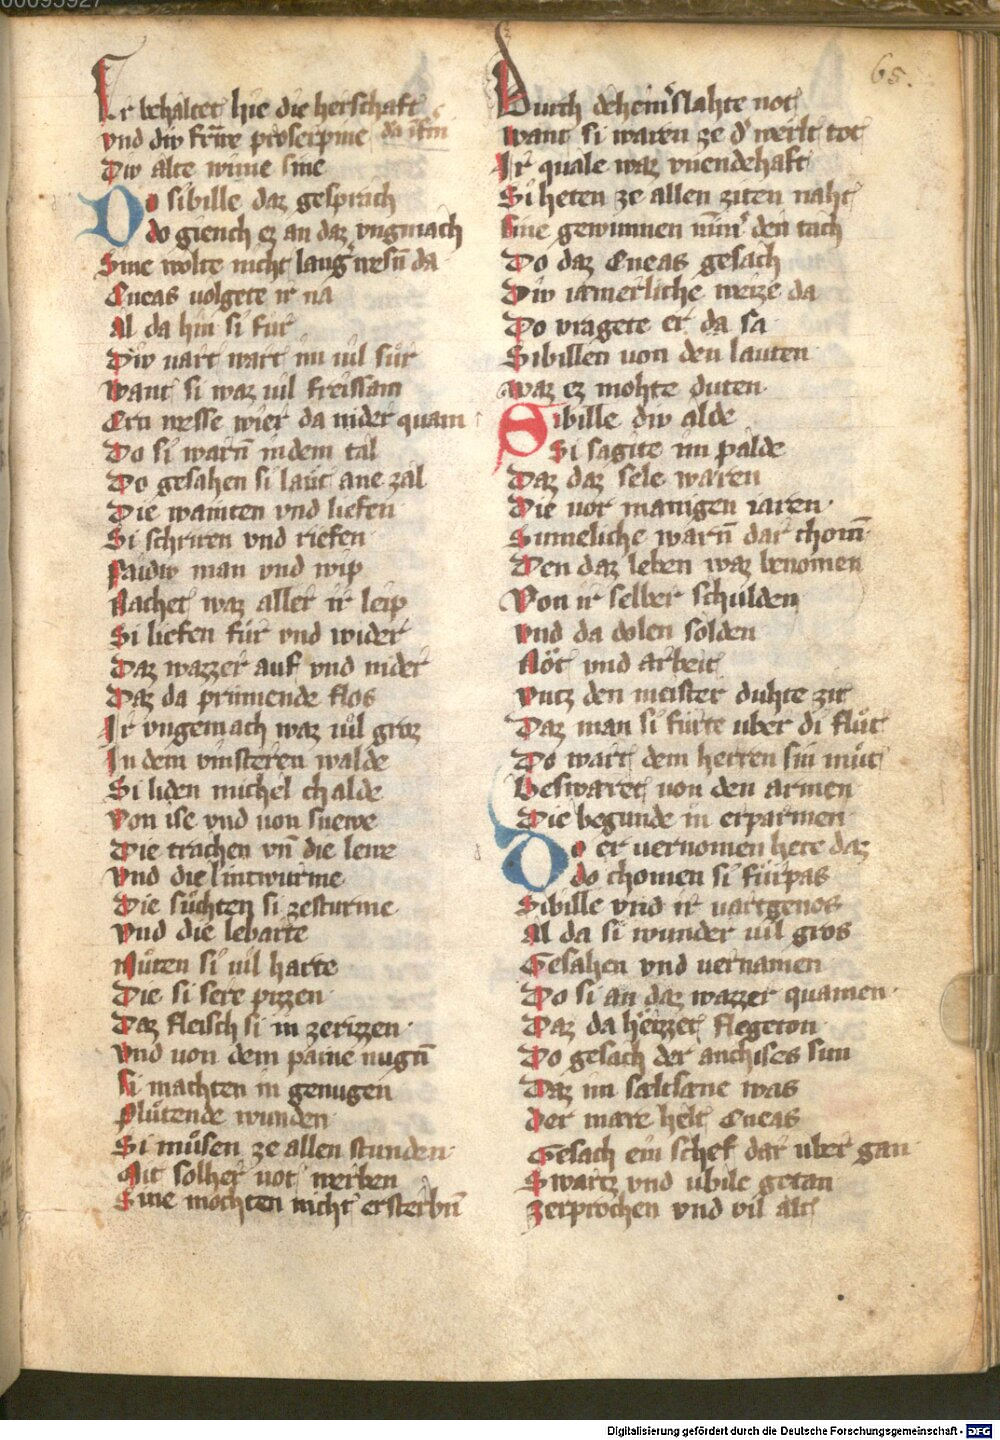 65.
Er behaltet hie die herschaft
vnd div frǒwe proserpine da ist in
Div alte wine sine
Do sibille daz gesprach
do giench ez an daz vngmach
Sine wolte nicht lang wesn̄ da
Eneas uolgete ir na
Al da hin si fur
Div uart wart im uil sůr
want si waz uil freissam
Ern wesse wier da nider quam
Do si warn̄ in dem tal
Do gesahen si laut ane zal
Die wainten vnd liefen
Si schriren vnd riefen
paidiv man vnd wip
Nachet waz aller ir leip
Si liefen fůr vnd wider
Daz wazzer auf vnd nider
Daz da prinnende flos
Ir vngemach waz uil groz
In dem vinsteren walde
Si liden michel chalde
Von ise vnd uon snewe
Die trachen vn̄ die lewe
Vnd die lintwurme
Die sůchten si ze sturme
Vnd die lebarte
Můten si uil harte
Die si sere pizzen
Daz fleisch si in zerizzen
vnd von dem paine nugn̄
si machten in genugen
plůtende wunden
Si můsen ze allen stunden
Mit solher not werben
Sine mochten nicht ersterbn̄
Durch deheinˀ slahte not
want si waren ze dˀ werlt tot
Ir quale waz vnendehaft
Si heten ze allen ziten naht
Sine gewinnen nim̄ˀ den tach
Do daz Eneas gesach
Div iamerliche weize da
Do vragete er da sa
Sibillen uon den lauten
waz ez mohte duten
Sibille div alde
Si sagite im palde
Daz daz sele waren
Die uor manigen iaren
Sumeliche warn̄ dar chom̄
Den daz leben waz benomen
Von ir selber schulden
vnd da dolen solden
Nǒt vnd arbeit
vntz den meister duhte zit
Daz man si fůrte uber di flůt
Do wart dem herren sin můt
beswaret uon den armen
Die begunde in erparmen
Do er uernomen hete daz
do chomen si fůrpas
Sibille vnd ir uartgenos
Al da si wunder uil gros
Gesahen vnd uernamen
Do si an daz wazzer quamen
Daz da heizzet flegeton
Do gesach der anchises sun
Daz im sæltsæne was
der mære helt Eneas
Gesach ein schef dar uber gan
Swartz vnd ubile getan
zerprochen vnd vil alt
Digitalisierung gefördert durch die Deutsche Forschungsgemeinschaft - DFG